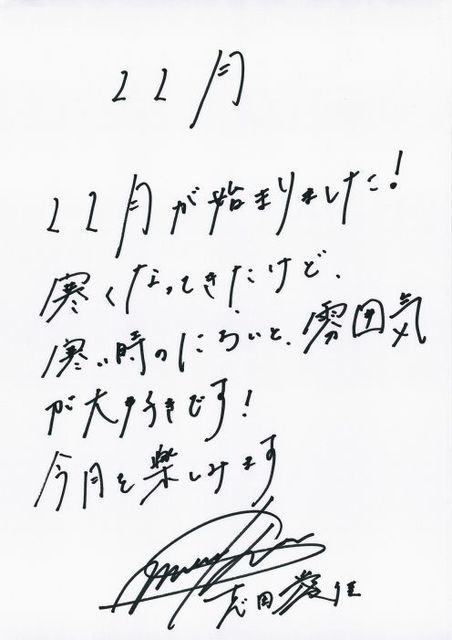 11月
11月が始まりました!
寒くなってきたけど、
寒い時のにおいと、雰囲気
が大好きです!
今月も楽しみます
志田愛佳